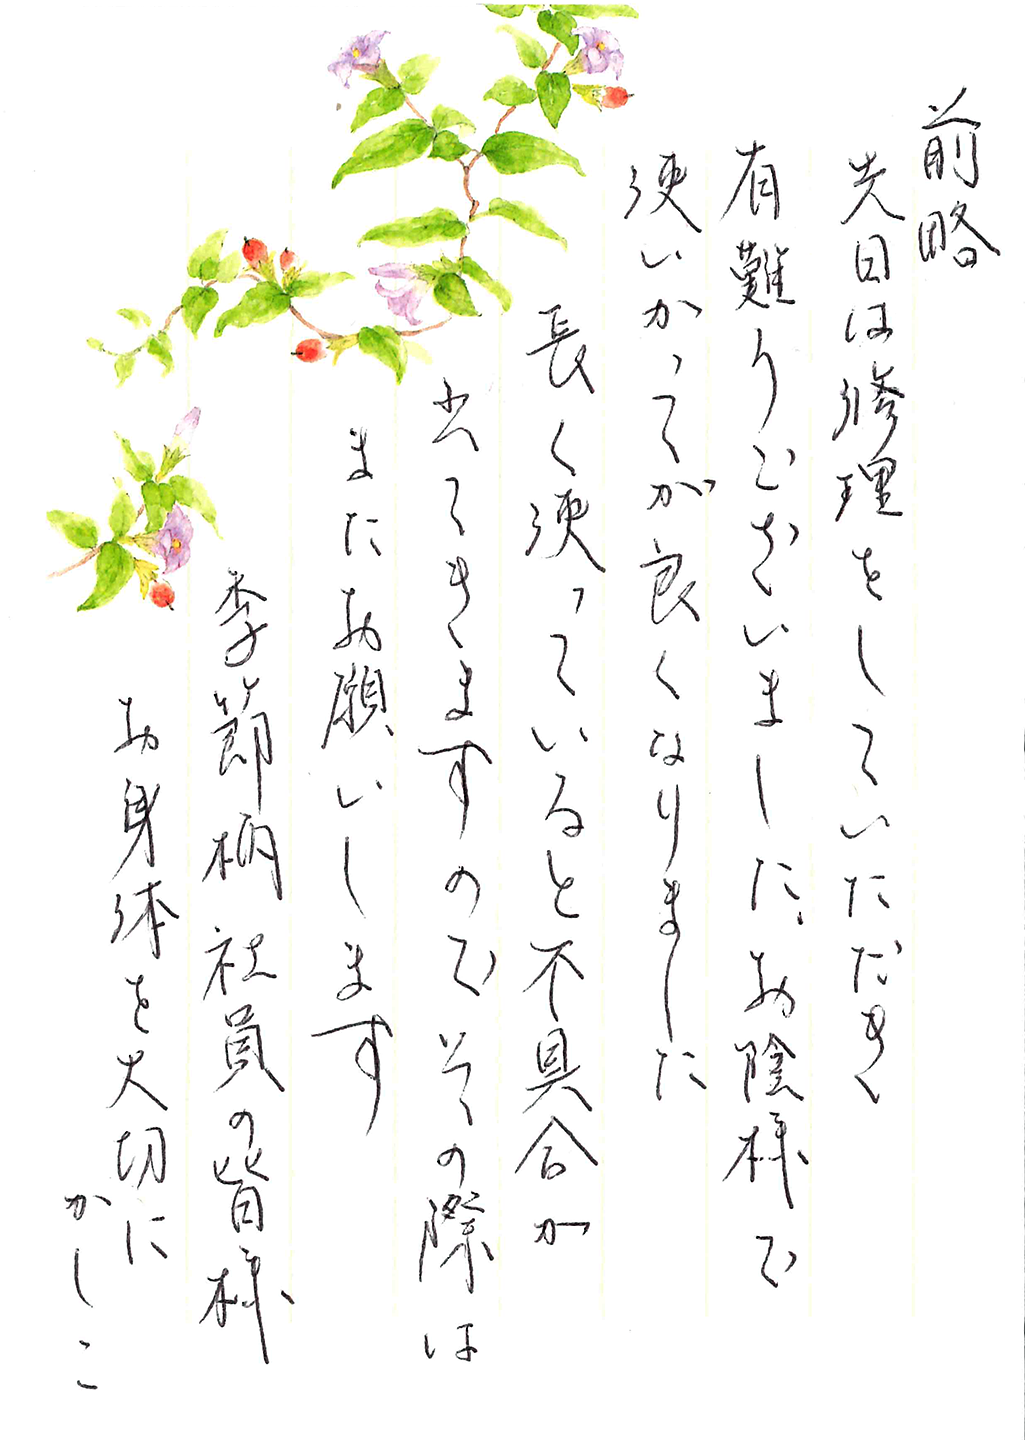 前略
先日は修理をしていただき
有難うございました、お陰様で
使いかってが良くなりました
長く使っていると不具合が
出てきますのでその際は
またお願いします
季節柄社員の皆様
お身体を大切に
かしこ